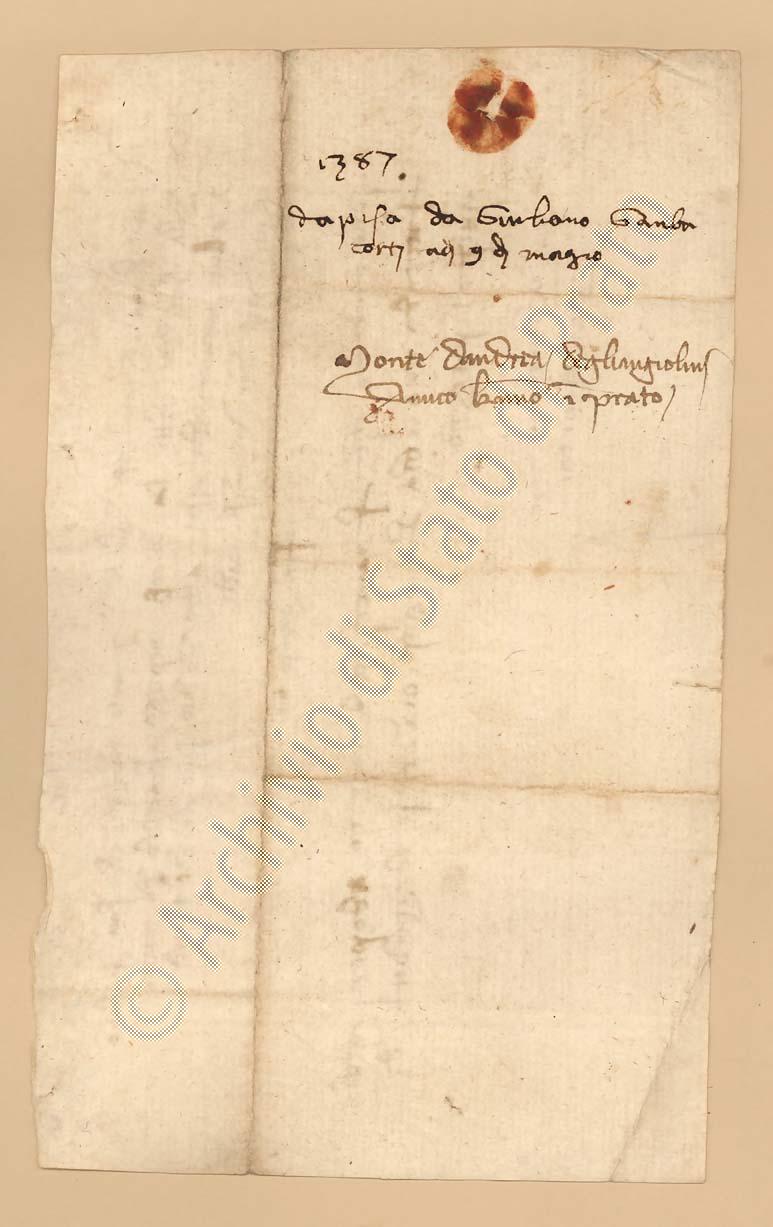 1387
da pisa da Giuliano Ganba
corti adi 9 di magio
Monte dandrea degliangiolini
Amico karissimo in prato
© Archivio di Stato di Prato